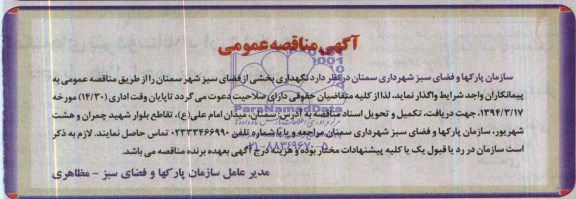 آگهی مناقصه عمومی
سازمان پارکها و فضای سبز شهرداری سمنان در نظر دارد نگهداری بخشی از فضای سبز شهر سمنان را از طریق مناقصه عمومی به
پیمانکاران واجد شرایط واگذار نماید، لذا از کلیه متقاضیان حقوقی دارای صلاحیت دعوت می گردد تا پایان وقت اداری (۱۴/۳۰) مورخه
۱۳۹۴/۳/۱۷، جهت دریافت، تکمیل و تحویل اسناد مناقصه به آدرس: سمنان، میدان امام علی(ع)، تقاطع بلوار شهید چمران و هشت
شهریور، سازمان پارکها و فضای سبز شهرداری سمنان مراجعه و یا با شماره تلفن ۰۲۳۳۳۴۶۶۹۹۰ تماس حاصل نمایند. لازم به ذکر
است سازمان در رد یا قبول یک یا کلیه پیشنهادات مختار بوده و هزینه درج آگهی بعهده برنده مناقصه می باشد.
مدیر عامل سازمان پارکها و فضای سبز - مظاهری
ParsNamadData
۰۲۱-۸۸۳۴۹۶۷۰-۵